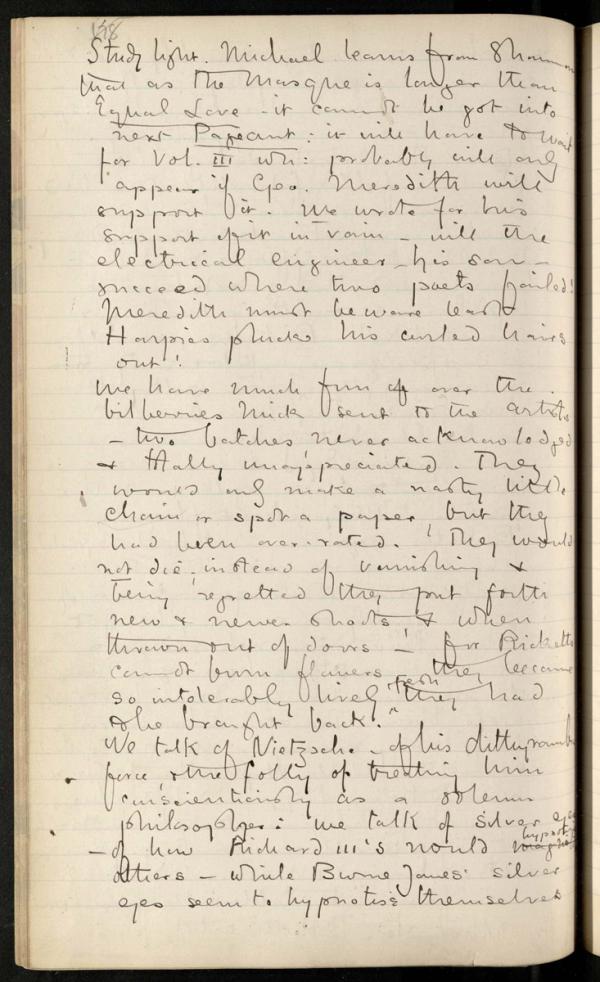 158
Study light. Michael learns from Shannon
that as the Masque is longer than
Equal Love - it cannot be got into
next Pageant: it will have to wait
for Vol. III wh: probably will only
appear if Geo. Meredith will
support it. We wrote for his
support of it in vain - will the
electrical engineer - his son -
succeed where two poets failed!
Meredith must beware least
Harpies pluck his curled hairs
out!
We have much fun over the
bilberries Mick sent to the artists
- two batches never acknowledged
& totally unappreciated. They
would only make a nasty little
chain or spot a paper, but they
had been over-rated. They would
not die; instead of vanishing &
being regretted they put forth
new & newer shoots & when
thrown out of doors - for Ricketts
cannot burn flowers they became
so intolerably lively they had
to be brought back!
We talk of Nietzsche - of his dithyrambic
force & the folly of treating him
conscientiously as a solemn
philosopher: we talk of silver eyes
- of how Richard III's would
others - while Burne Jones' silver
eyes seem to hypnotise themselves